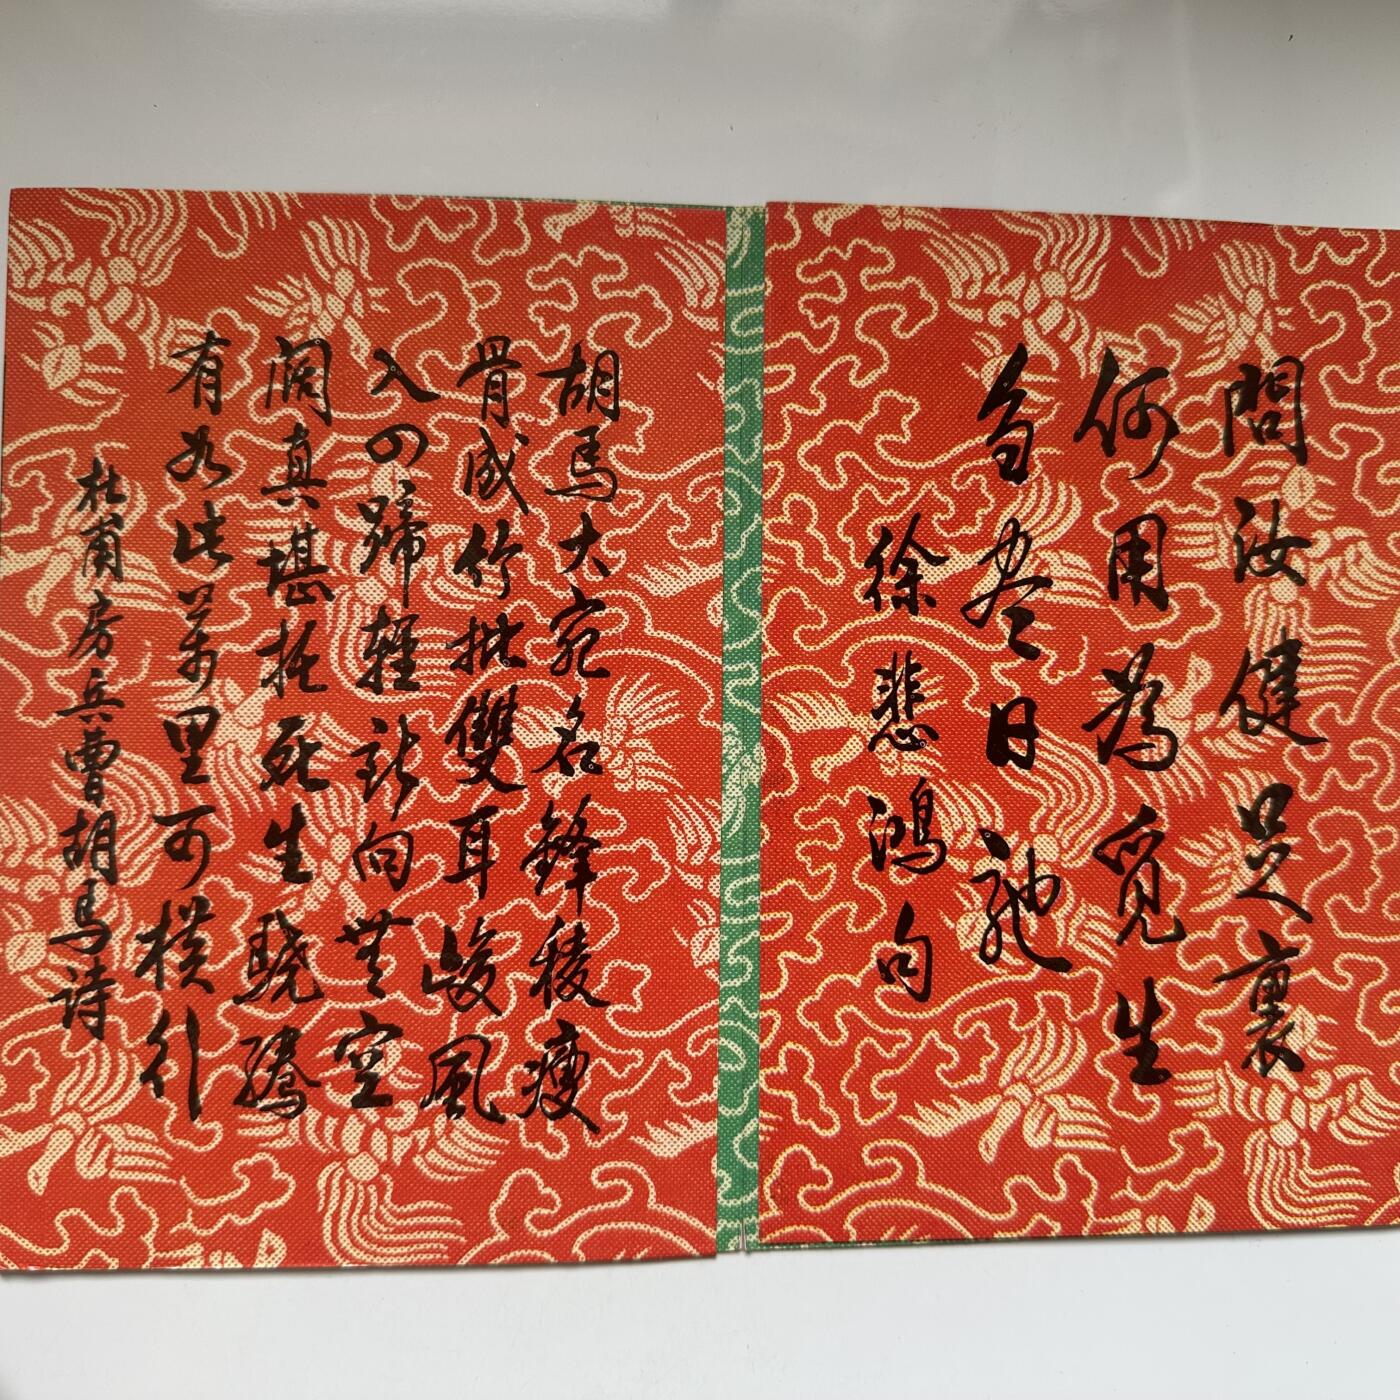 問汝健足裹
何用為覓生
芻盡日馳
徐悲鴻句
胡馬大宛名鋒稜瘦
骨成竹批雙耳峻風
入四蹄輕所向無空
闊真堪托死生驍騰
有如此萬里可橫行
杜甫房兵曹胡馬詩